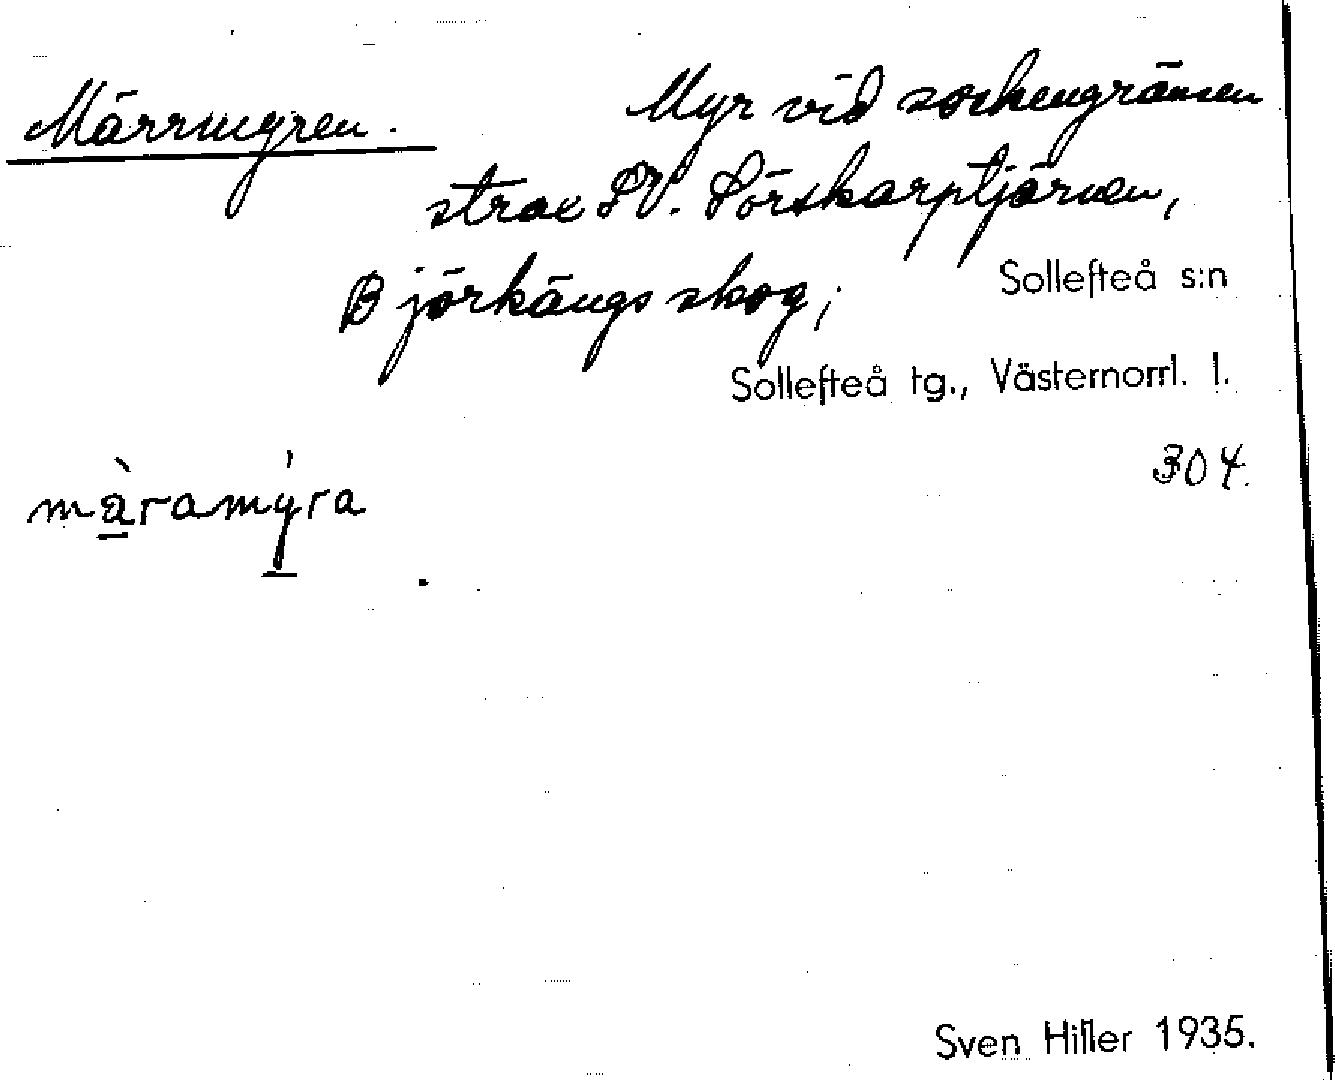 Märrmyren. Myr vid sockengränsen
strax SV. Sörskarptjärnen,
Björkängs skog; Sollefteå s:n
Sollefteå tg., Västernorrl. l.
304.
màramýra
Sven Hiller 1935.